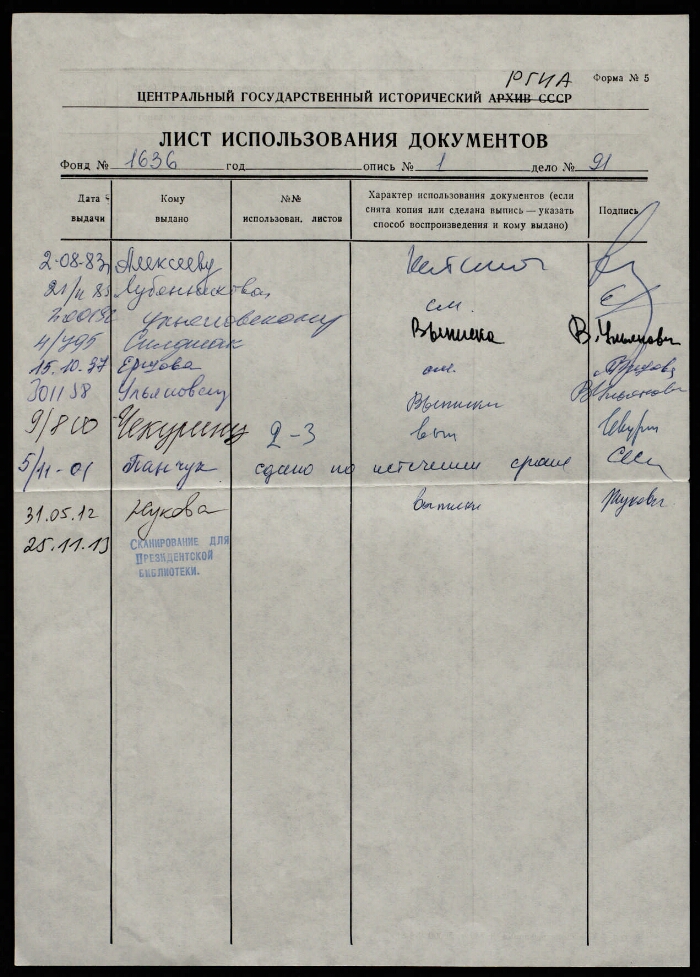 РГИА Форма № 5
ЦЕНТРАЛЬНЫЙ ГОСУДАРСТВЕННЫЙ ИСТОРИЧЕСКИЙ АРХИВ СССР
ЛИСТ ИСПОЛЬЗОВАНИЯ ДОКУМЕНТОВ
Фонд № 1636 год опись № 1 дело № 91
Дата выдачи
Кому выдано
№№ использован. листов
Характер использования документов (если
снята копия или сделана выпись — указать
способ воспроизведения и кому выдано)
Подпись
2-08-83 Алексееву
см.
4/VII95 Выписка В. Ульянович
15.10.97 Ершова см.
301198 Выписки
9/800 Чекурину 2-3 вып
5/11-01 Панчук сдано по истечении срока
31.05.12 Жукова выписки
25.11.13 СКАНИРОВАНИЕ ДЛЯ
ПРЕЗИДЕНТСКОЙ
БИБЛИОТЕКИ.